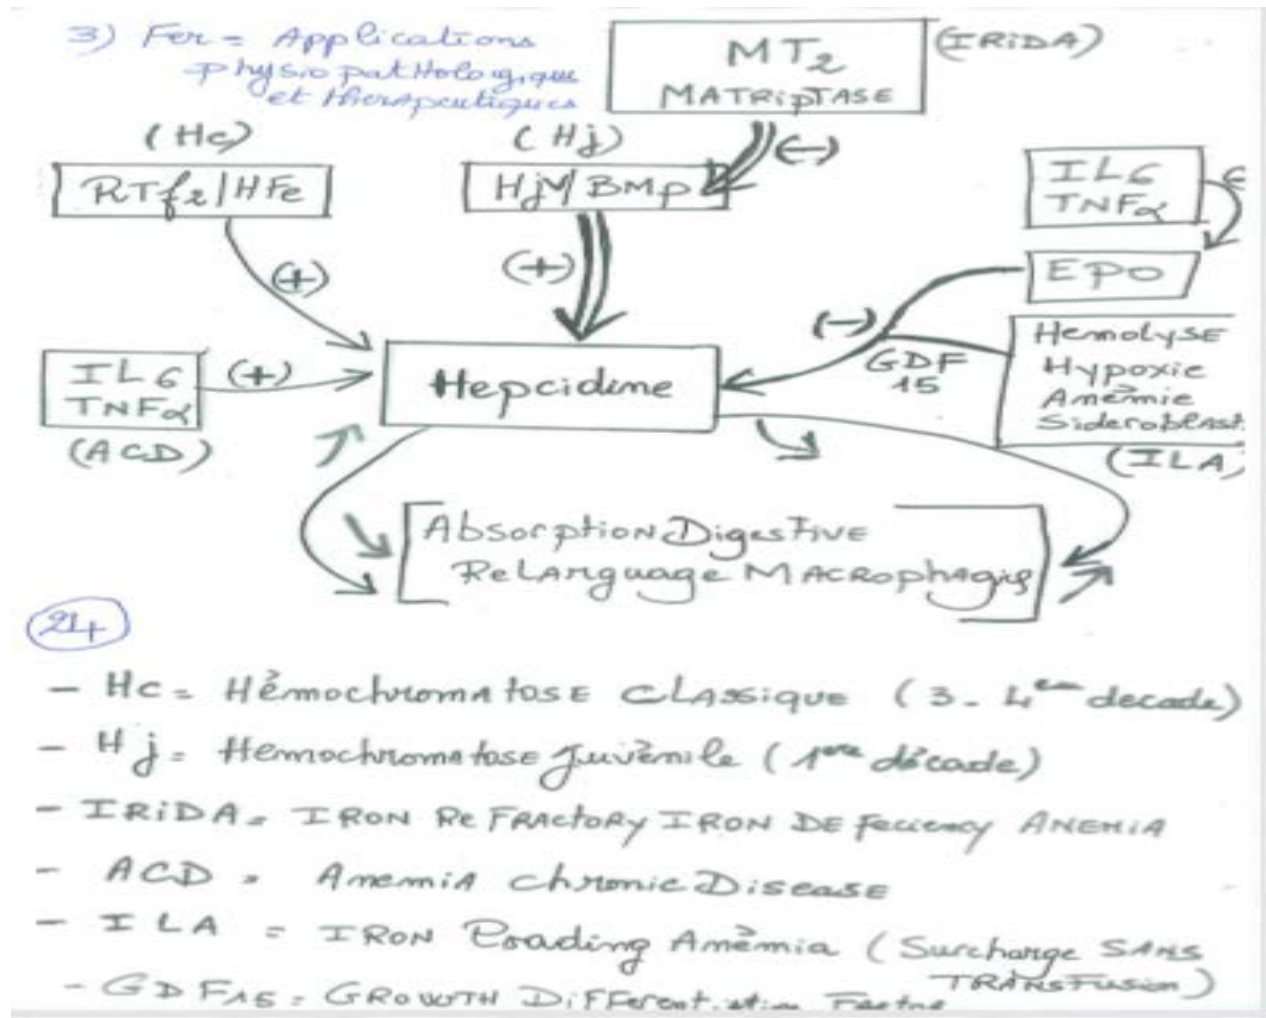 3) Fer = Applications
physiopathologique
et therapeutiques
MT2
MATRIPTASE
(IRIDA)
(Hc)
RTf2/HFe
(+)
(Hj)
HjV/BMP
(-)
(+)
IL6
TNFα
EPO
(-)
GDF
15
Hemolyse
Hypoxie
Anémie
Sideroblast
(ILA)
IL6
TNFα
(+)
(ACD)
Hepcidine
Absorption Digestive
Relarguage MACROphagiq
24
- Hc = Hémochromatose CLAssique (3-4 decade)
- Hj = Hemochromatose Juvénile (1ere décade)
- IRIDA = IRON ReFRActORY IRON DEFeciency ANEMIA
- ACD = Anemia chronic Disease
- ILA = IRON Loading Anémia (Surcharge SANS
TRANSFusion)
- GDF15 = GROWTH DiFFerentiation Factor